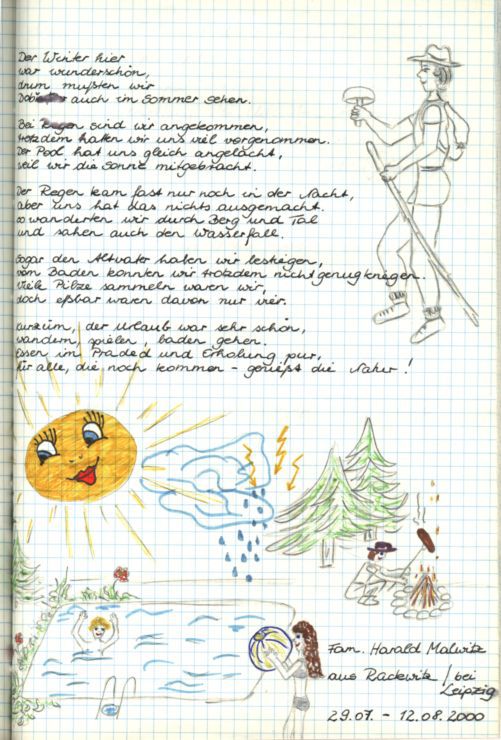 Der Winter hier
war wunderschön,
drum mußten wir
auch im Sommer sehen.
Bei Regen sind wir angekommen,
trotzdem hatten wir uns viel vorgenommen.
Der Pool hat uns gleich angelacht,
weil wir die Sonne mitgebracht.
Der Regen kam fast nur noch in der Nacht,
aber uns hat das nichts ausgemacht.
so wanderten wir durch Berg und Tal
und sahen auch den Wasserfall.
Sogar den Altvater haben wir bestiegen,
vom Baden konnten wir trotzdem nicht genug kriegen.
Viele Pilze sammeln waren wir,
doch eßbar waren davon nur vier.
Kurzum, der Urlaub war sehr schön,
wandern, spielen, baden gehen.
Essen im Praded und Erholung pur,
für alle, die noch kommen - genießt die Natur!
Fam. Harald Malwitz
aus Rackwitz / bei
Leipzig
29.07. - 12.08.2000